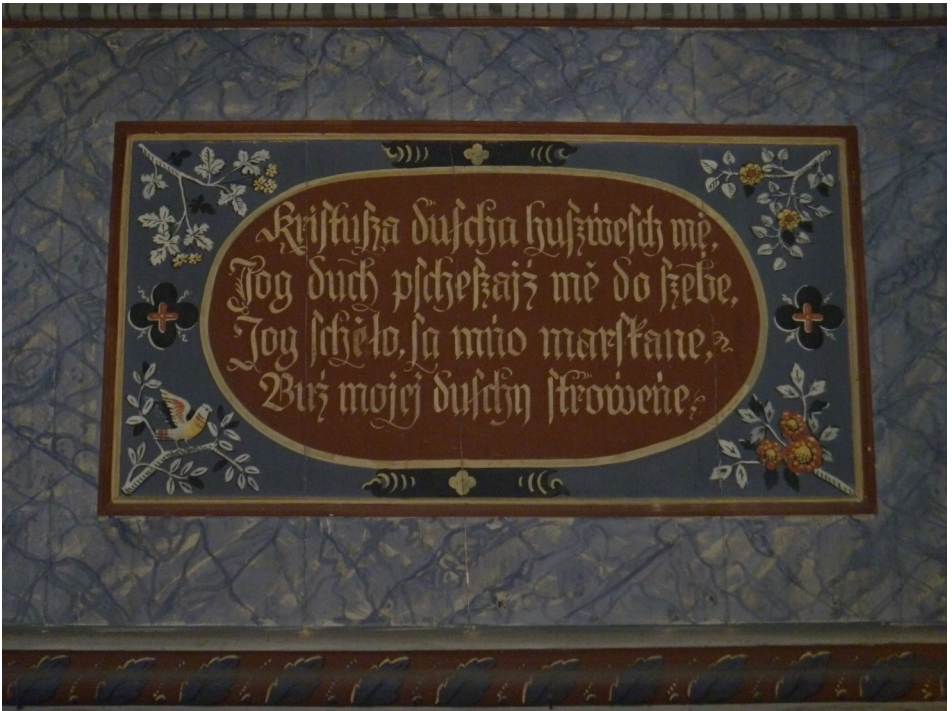 Kriſtuſza duſcha huſzẃeſch mę,
Jog duch pſcheſzajź mě do ſzebe,
Jog ſchěło, ſa mńo marſkane,
Buź mojej duſchy ſtroẃeńe